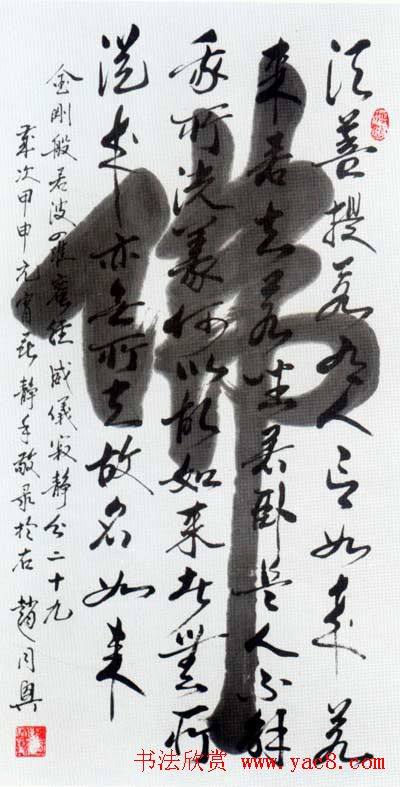 佛
须菩提若有人言如来若
来若去若坐若卧是人不解
我所说義何以故如来者無所
從来亦無所去故名如来
金剛般若波羅蜜經威儀寂静分二十九
歲次甲申元宵 静手敬录於右 趙同興
书法欣赏
www.yac8.com